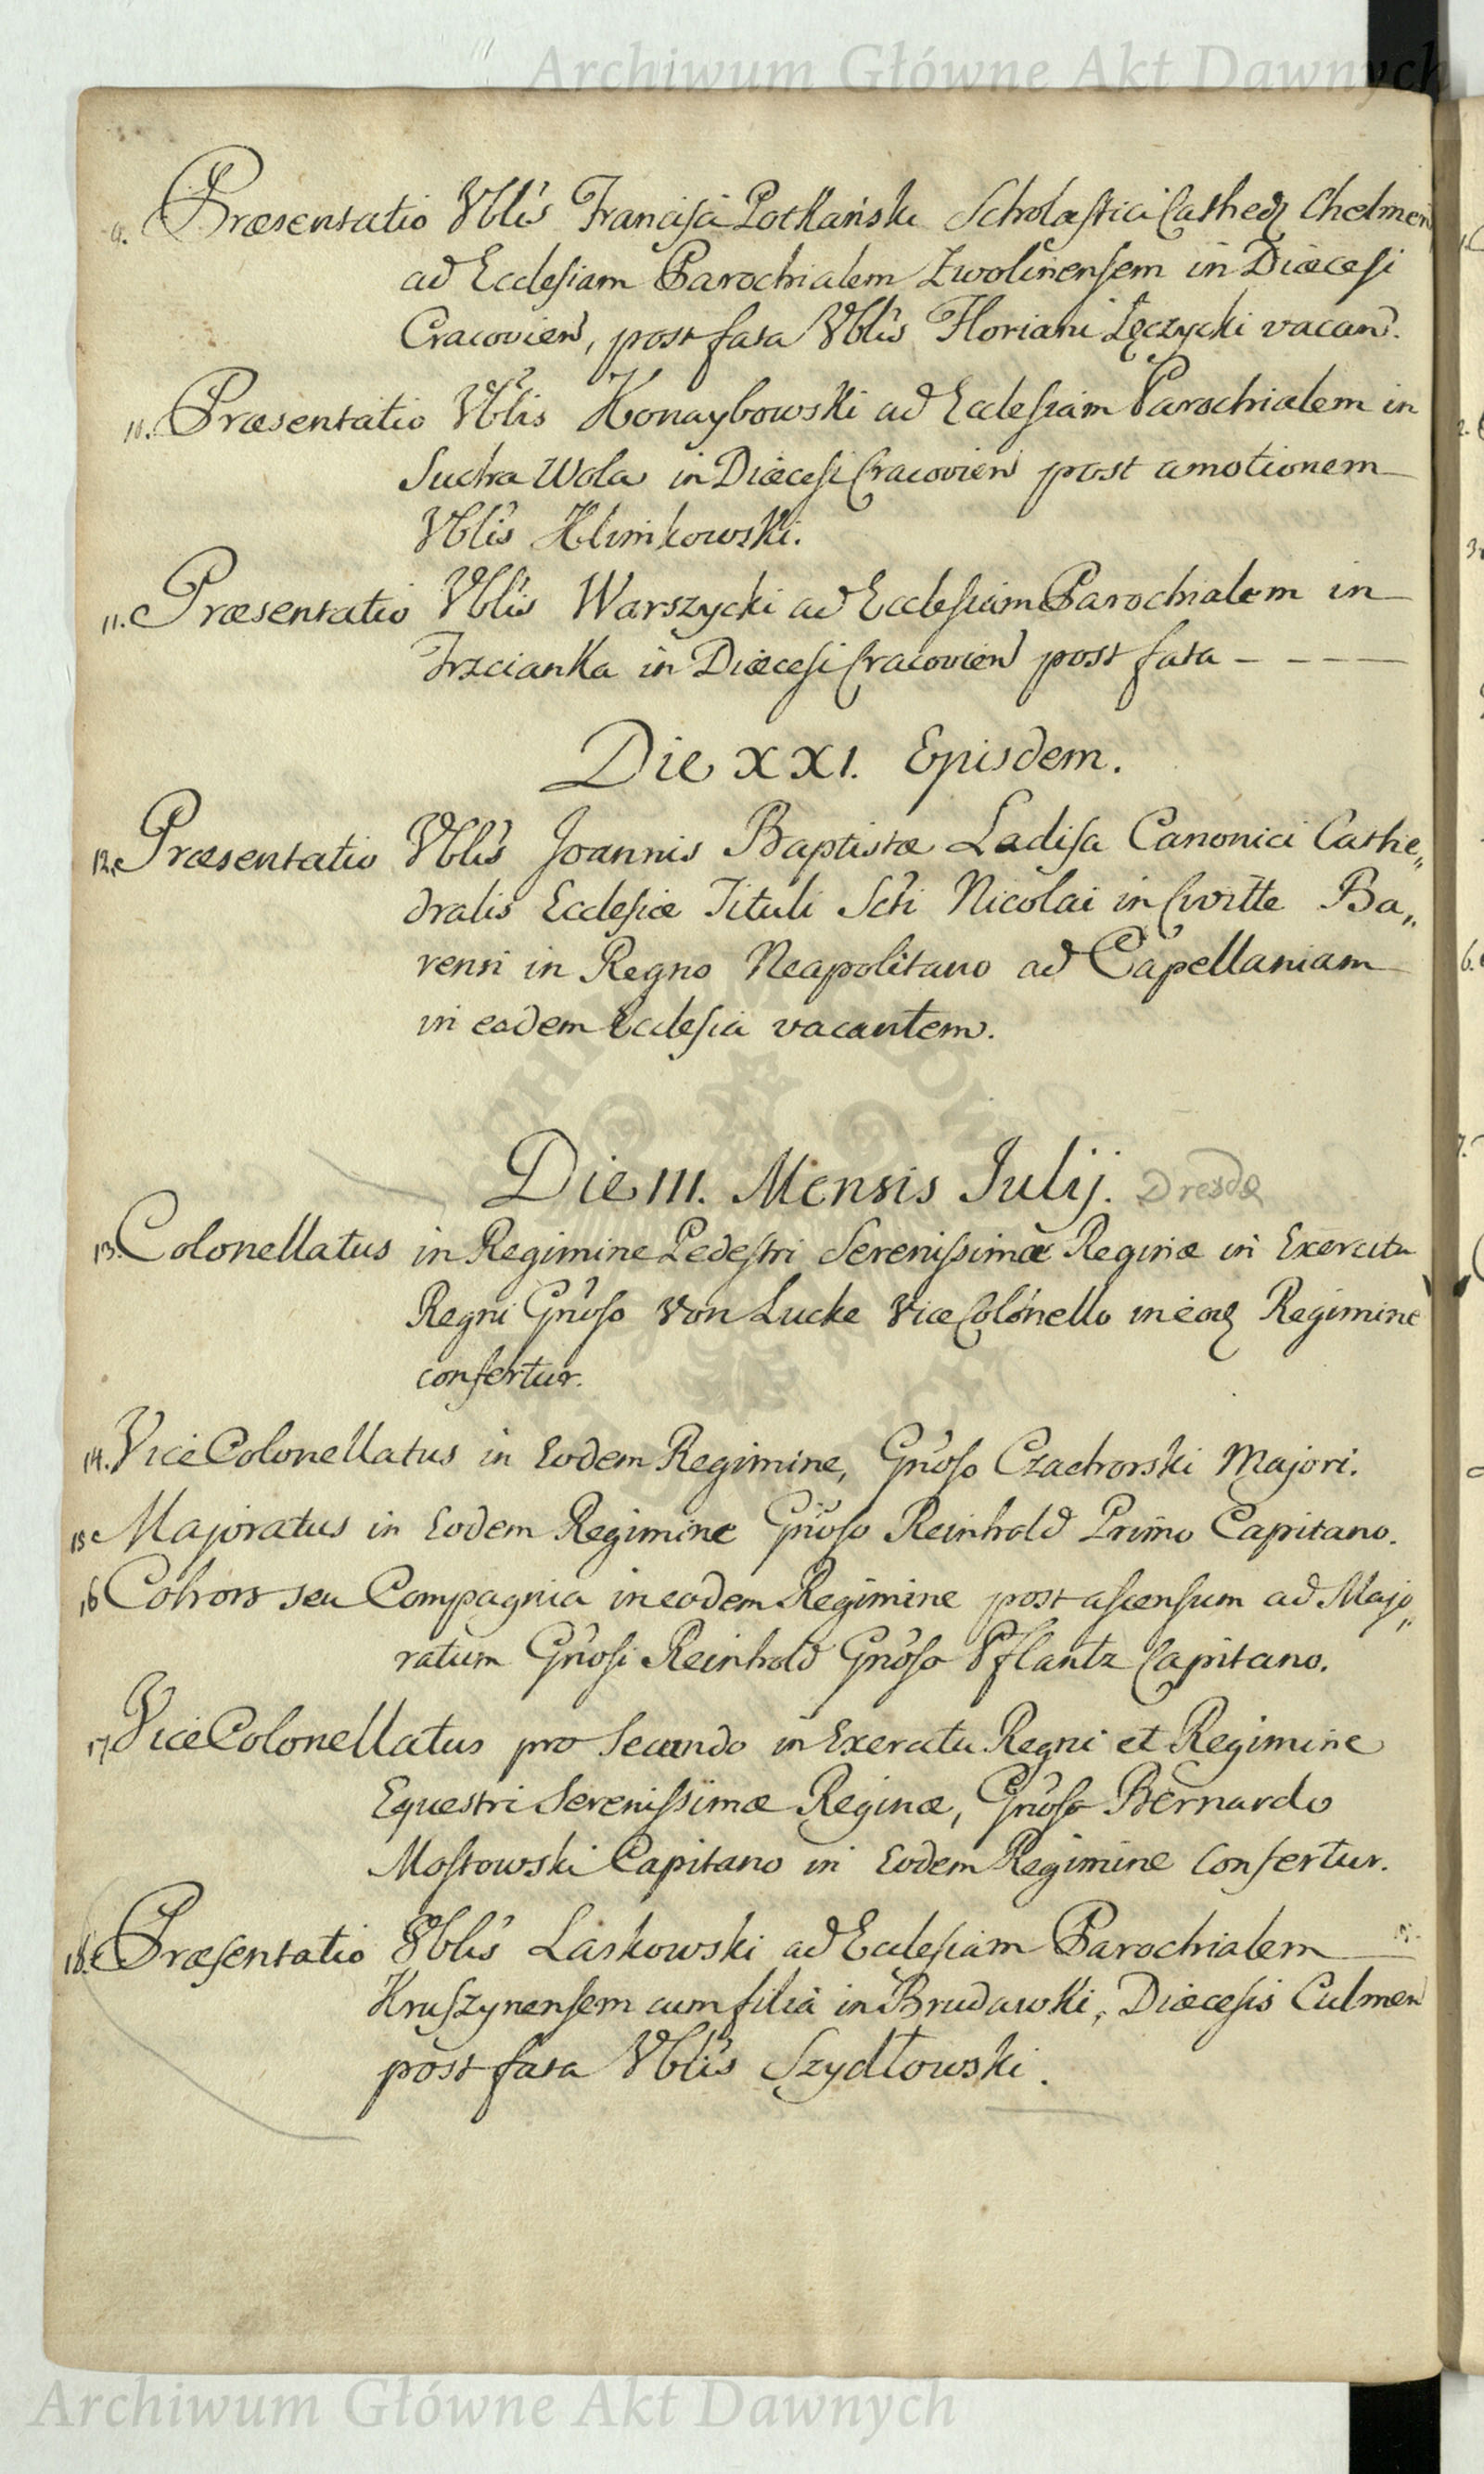 Archiwum Główne Akt Dawnych
9. Præsentatio Vblis Francisci Potkański Scholastici Cathedr Chelmen
ad Ecclesiam Parochialem Zwolinensem in Diœcesi
Cracovien, post fata Vblis Floriani Łęczycki vacan.
10. Præsentatio Vblis Konaybowski ad Ecclesiam Parochialem in
Sucha Wola in Diœcesi Cracovien post amotionem
Vblis Klimkowski.
11. Præsentatio Vblis Warszycki ad Ecclesiam Parochialem in
Trzcianka in Diœcesi Cracovien post fata - - - -
Die XXI. Ejusdem.
12. Præsentatio Vblis Joannis Baptistæ Ladisa Canonici Cathe„
dralis Ecclesiæ Tituli Scti Nicolai in Civitte Ba„
rensi in Regno Neapolitano ad Capellaniam
in eadem Ecclesia vacantem.
Die III. Mensis Julij. Dresdæ
13. Colonellatus in Regimine Pedestri Serenissimæ Reginæ in Exercitu
Regni Gnoso Von Lucke Vice Colonello in eod Regimine
confertur.
14. Vice Colonellatus in Eodem Regimine, Gnoso Czachorski Majori.
15 Majoratus in Eodem Regimine Gnoso Reinhold Primo Capitano.
16 Cohors seu Compagnia in eodem Regimine post ascensum ad Majo„
ratum Gnosi Reinhold Gnoso Pflantz Capitano.
17. Vice Colonellatus pro Secundo in Exercitu Regni et Regimine
Equestri Serenissimæ Reginæ, Gnoso Bernardo
Mostowski Capitano in Eodem Regimine Confertur.
18. Præsentatio Vblis Laskowski ad Ecclesiam Parochialem
Kruszynensem cum filia in Brudawki, Diœcesis Culmen
post fata Vblis Szydłowski.
Archiwum Główne Akt Dawnych